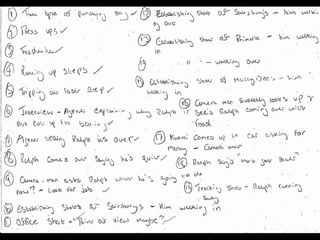 ① Time lapse of punching bag ✓
② Press ups ✓
③ Treadmill ✓
④ Running up steps ✓
⑤ Tripping on last step ✓
⑥ Interview - Agent explaining why Ralph is
cut up for boxing
⑦ Agent telling Ralph its over ✓
⑧ Ralph comes out saying he's quit ✓
⑨ Camera-man asks Ralph what he's going to do
now? - Look for job ✓
⑩ Establishing shots of Sainsburys - Him walking in
⑪ Office Shot - "Point of view maybe?" ✓
⑫ Establishing shots of Sainsburys - him walking
out
⑬ Establishing shot of Primark - him walking
in
⑭ " " - walking over
⑮ Establishing shot of McDonalds - him
walking in
⑯ Camera man suddenly looks up &
sees Ralph coming out with
food
⑰ Kwami comes up in car asking for
money - Camera man
⑱ Ralph says "
⑲ Tracking shot - Ralph running
away